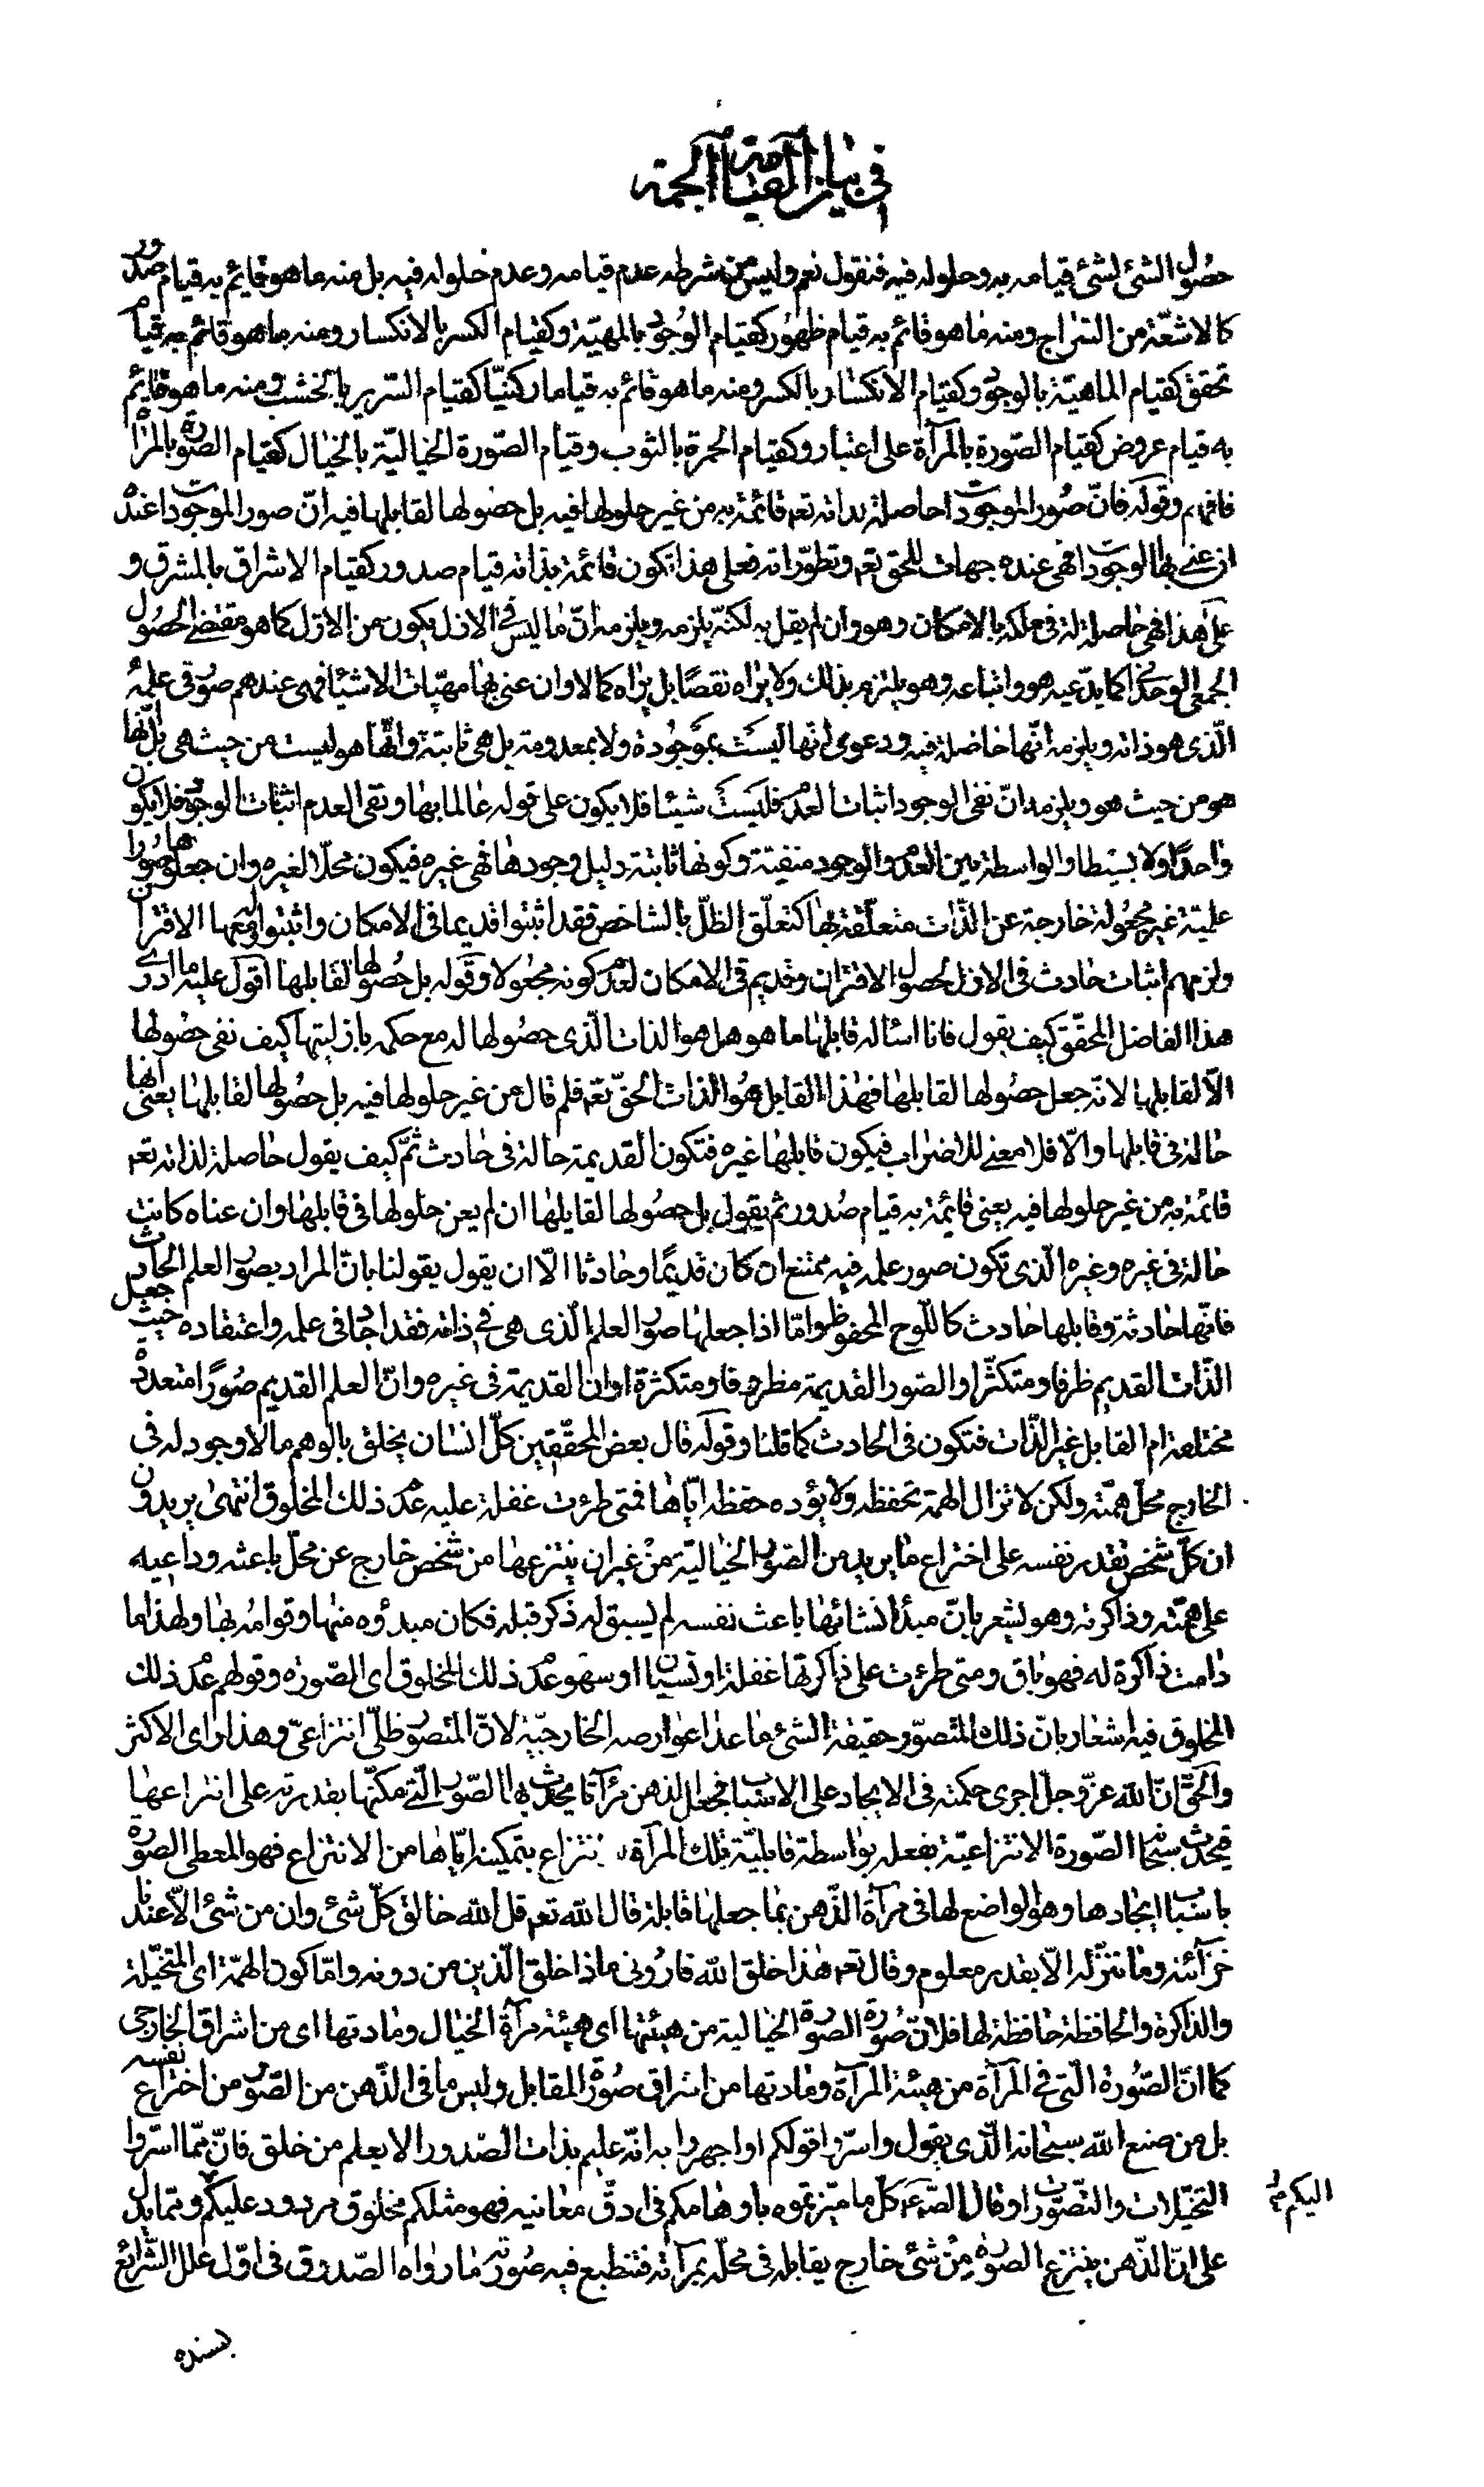 في بيان القيامة الجمة
حصول الشئ لشئ قيامه به وحلوله فيه فنقول نعم وليس من شرطه عدم قيامه وعدم حلوله فيه بل منه ما هو قائم به قيام صدور
كالاشعّة من السّراج ومنه ما هو قائم به قيام ظهور كقيام الوجود بالمهيّة وكقيام الكسر بالانكسار ومنه ما هو قائم به قيام
تحقق كقيام الماهيّة بالوجود وكقيام الانكسار بالكسر ومنه ما هو قائم به قياما ركنيّا كقيام السّرير بالخشب ومنه ما هو قائم
به قيام عروض كقيام الصّورة بالمرآة على اعتبار وكقيام الحمرة بالثوب وقيام الصّورة الخياليّة بالخيال كقيام الصّورة بالمرآة
فافهم وقوله فانّ صور الموجودات حاصلة بذاته تعه قائمة به من غير حلولها فيه بل حصولها لقابلها فيه انّ صور الموجودات عنده
ان عنى بها الوجودات فهى عنده جهات للحق تعه وتطوّراته فعلى هذا تكون قائمة بذاته قيام صدور كقيام الاشراق بالمشرق و
على هذا فهى حاصلة له فى ملكه بالامكان وهو وان لم يقل به لكنّه يلزمه ويلزمه انّ ما ليس فى الازل يكون من الازل كما هو مقتضى الحصول
الجمعى الوحدانى كما يدّعيه هو واتباعه وهو يلتزم بذلك ولا يراه نقصًا بل يراه كمالا وان عنى بها مهيّات الاشياء فهى عندهم صور فى علمه
الّذى هو ذاته ويلزمه انّها حاصلة فيه ودعوى انّها ليست بموجودة ولا بمعدومة بل هى ثابتة وانّها هو ليست من حيث هى بل انّها
هو من حيث هو ويلزمه انّ نفى الوجود اثبات العدم فليست شيئا فلا يكون على قوله عالما بها ونفى العدم اثبات الوجود فلا يكون
واحدًا ولا بسيطا والواسطة بين العدم والوجود منفيّة وكونها ثابتة دليل وجودها فهى غيره فيكون محلّا لغيره وان جعلوها صورا
علميّة غير مجعولة خارجة عن الذّات متعلّقة بها كتعلّق الظلّ بالشاخص فقد اثبتوا قديما فى الامكان واثبتوا له معها الاقتران
ولزمهم اثبات حادث فى الازل لحصول الاقتران وقديم فى الامكان لعدم كونه مجعولا وقوله بل حصولها لقابلها اقول عليه ما ادرى
هذا الفاضل المحقّق كيف يقول فانا اسئاله قابلها ما هو هل هو الذات الّذى حصولها له مع حكمه بازليتها كيف نفى حصولها
الّا لقابلها لانّه جعل حصولها لقابلها فهذا القابل هو الذات الحقّ تعه فلم قال من غير حلولها فيه بل حصولها لقابلها يعنى انّها
حالة فى قابلها والّا فلا معنى للاضراب فيكون قابلها غيره فتكون القديمة حالة فى حادث ثمّ كيف يقول حاصلة لذاته تعه
قائمة به من غير حلولها فيه يعنى قائمة به قيام صدور ثم يقول بل حصولها لقابلها ان لم يعن حلولها فى قابلها وان عناه كانت
حالة فى غيره وغيره الّذى تكون صور علمه فيه ممتنع ان كان قديمًا وحادثا الّا ان يقول بقولنا بانّ المراد بصور العلم الحادث
فانّها حادثة وقابلها حادث كاللّوح المحفوظ وامّا اذا جعلها صور العلم الّذى هى فى ذاته فقد اجّا فى علمه واعتقاده حيث جعل
الذّات القديم ظرفا ومتكثّرا والصّور القديمة مظروفا ومتكثرة او ان القديمة فى غيره وانّ العلم القديم صورًا متعددة
مختلفة ام القابل غير الذّات فتكون فى الحادث كما قلنا وقوله قال بعض المحقّقين كلّ انسان يخلق بالوهم ما لا وجود له فى
الخارج محلّ همّته ولكن لا تزال الهمة تحفظه ولا يؤده حفظه ايّاها فمتى طرئت غفلة عليه عدم ذلك المخلوق انتهى يريدون
ان كلّ شخص تقدر نفسه على اختراع ما يريد من الصّور الخياليّة من غير ان ينتزعها من شخص خارج عن محلّ باعثه وداعيه
على همّته وذاكرته وهو يشعر بانّ مبدأ انشائها باعث نفسه لم يسبق له ذكر قبله فكان مبدؤه منها وقوامه بها ولهذا ما
دامت ذاكرة له فهو باق ومتى طرئت على ذاكرتها غفلة او نسيان او سهو عدم ذلك المخلوق اى الصّورة وقولهم عدم ذلك
المخلوق فيه اشعار بانّ ذلك المتصوّر حقيقة الشئ ما عدا عوارضه الخارجيّة لانّ المتصوّر ظلّى انتزاعىّ وهذا راى الاكثر
والحقّ انّ الله عزّ وجلّ اجرى حكمته فى الايجاد على الاسباب فجعل الذهن مرآتا يحدث بها الصّور الّتى مكنّها بقدرته على انتزاعها
فيحدث سبحانه الصّورة الانتزاعيّة بفعله بواسطة قابليّة تلك المرآة للانتزاع بتمكينه ايّاها من الانتزاع فهو المعطى الصّورة
باسباب ايجادها وهو الواضع لها فى مرآة الذّهن بما جعلها قابلة قال الله تعه قل الله خالق كلّ شئ وان من شئ الّا عندنا
خزآئنه وما ننزّله الّا بقدر معلوم وقال تعه هذا خلق الله فارونى ماذا خلق الّذين من دونه وامّا كون الهمّة اى المتخيّلة
والذاكرة والحافظة حافظة لها فلانّ صورة الصّورة الخيالية من هيئتها اى هيئة مرآة الخيال ومادتها اى من اشراق الخارجى
كما انّ الصّورة الّتى فى المرآة من هيئة المرآة ومادتها من اشراق صورة المقابل وليس ما فى الذّهن من الصّور من اختراع نفسه
بل من صنع الله سبحانه الّذى يقول واسرّوا قولكم او اجهروا به انّه عليم بذات الصّدور الا يعلم من خلق فانّ ممّا اسرّوا
التخيّلات والتّصوّرات وقال الصّ عه كلّ ما ميّزتموه باوهامكم فى ادقّ معانيه فهو مثلكم مخلوق مردود عليكم وممّا يدلّ
اليكم
على انّ الذّهن ينتزع الصّورة من شئ خارج يقابله فى محلّه بمرآته فتنطبع فيه صورته ما رواه الصّدوق فى اوّل علل الشّرائع
بسنده